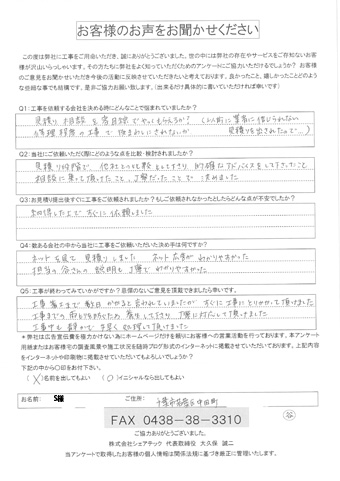 お客様のお声をお聞かせください
この度は弊社に工事をご用命いただき、誠にありがとうございました。世の中には弊社の存在やサービスをご存知ないお客
様が沢山いらっしゃいます。その方たちに弊社をよく知っていただくためのアンケートにご協力いただけるでしょうか？お客様
のご意見をお聞かせいただき今後の活動に反映させていただきたいと考えております。良かったこと、嬉しかったことどのよう
な些細な事でも結構です。是非ご協力お願い致します。（出来るだけ具体的に書いていただければ幸いです）
Q1：工事を依頼する会社を決める時にどんなことで悩まれていましたか？
見積り 相談
Q2：当社にご依頼いただく際にどのような点を比較・検討されましたか？
見積り
相談に乗って頂けたこと、丁寧だったことで 決めました
Q3：お見積り提出後すぐにご依頼されましたか？もしご依頼されなかったとしたらどんな点が不安でしたか？
納得した上ですぐに依頼しました
Q4：数ある会社の中から当社に工事をご依頼いただいた決め手は何ですか？
ネットを見て 見積りしました ネット広告が わかりやすかった
担当の谷さんの 説明も 丁寧でわかりやすかった
Q5：工事が終わってみていかがですか？忌憚のないご意見を頂戴できたら幸いです。
すぐに工事にとりかかって頂けました
丁寧に対応して頂けました
工事中も 静かで 手早く処理して頂けました
＊弊社は広告宣伝費を極力かけない為にホームページだけを頼りにお客様への営業活動を行っております。本アンケート
用紙またはお客様宅の調査風景や施工状況を随時ブログ形式でインターネットに掲載させていただいております。上記内容
をインターネットや印刷物に掲載させていただいてもよろしいでしょうか？
下記の中から〇印をお付下さい。
（X）名前を出してもよい （○）イニシャルなら出してもよい
お名前： S様 ご住所： 千葉市若葉区中田町
FAX 0438-38-3310
谷
ご協力ありがとうございました。
株式会社シェアテック 代表取締役 大久保 誠二
当アンケートで取得したお客様の個人情報は関係法規に基づき厳正に管理いたします。